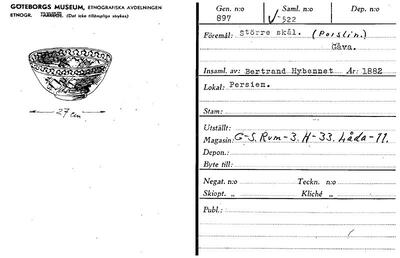 GÖTEBORGS MUSEUM, ETNOGRAFISKA AVDELNINGEN
ETNOGR. (Det icke tillämpliga strykes)
27 cm
Gen. n:o Saml. n:o Dep. n:o
897 522
Föremål: Större skål. (Porslin.)
Gåva.
Insaml. av: Bertrand Hybennet År: 1882
Lokal: Persien.
Stam:
Utställt:
Magasin: G-S. Rum-3. H-33. Låda-11.
Depon.:
Byte till:
Negat. n:o Teckn. n:o
Skiopt. „ Kliché „
Publ.: